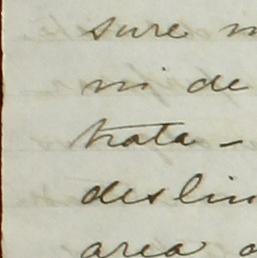 sure m
ni de
trata -
deslin
area a